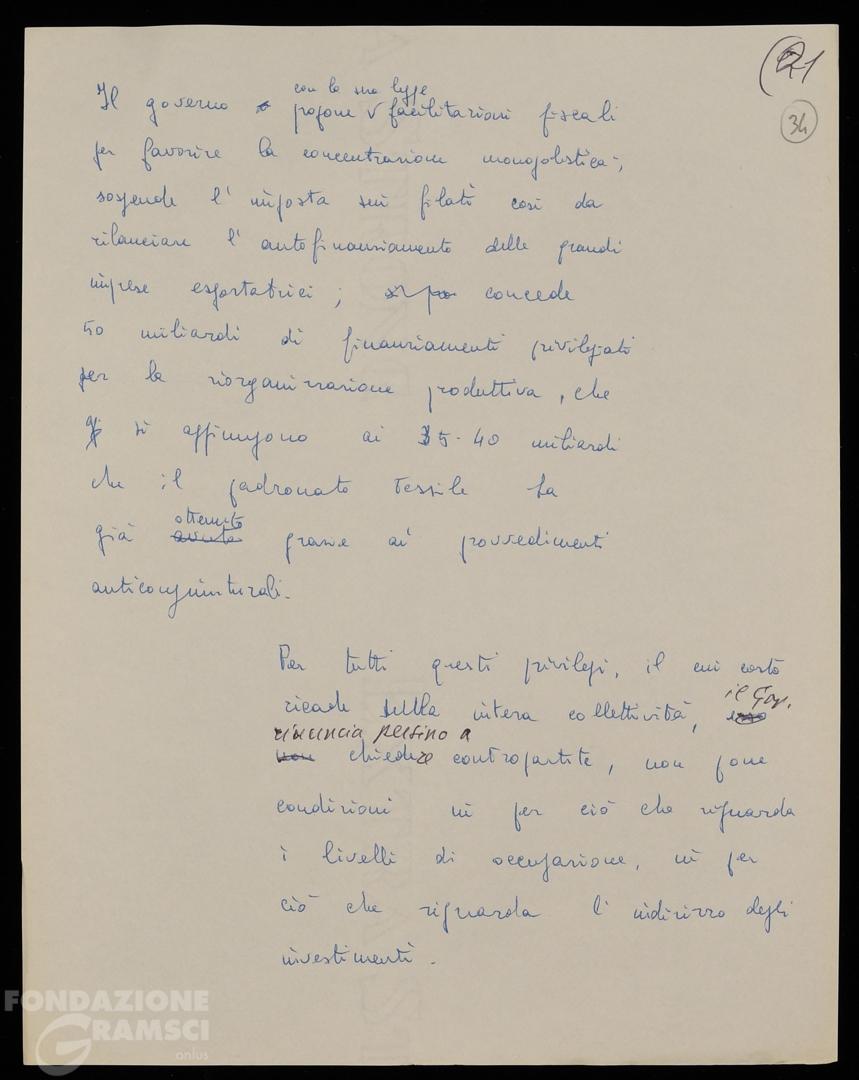 21
34
con la sua legge
Il governo propone facilitazioni fiscali
per favorire la concentrazione monopolistica;
sospende l'imposta sui filati così da
rilanciare l'autofinanziamento delle grandi
imprese esportatrici; concede
50 miliardi di finanziamenti privilegiati
per la riorganizzazione produttiva, che
si aggiungono ai 35-40 miliardi
che il padronato tessile ha
ottenuto
già avuto grazie ai provvedimenti
anticongiunturali.
Per tutti questi privilegi, il cui costo
il Gov.
ricade sulla intera collettività, esso
rinuncia persino a
non chiedere contropartite, non pone
condizioni nè per ciò che riguarda
i livelli di occupazione, nè per
ciò che riguarda l'indirizzo degli
investimenti.
FONDAZIONE
GRAMSCI
onlus